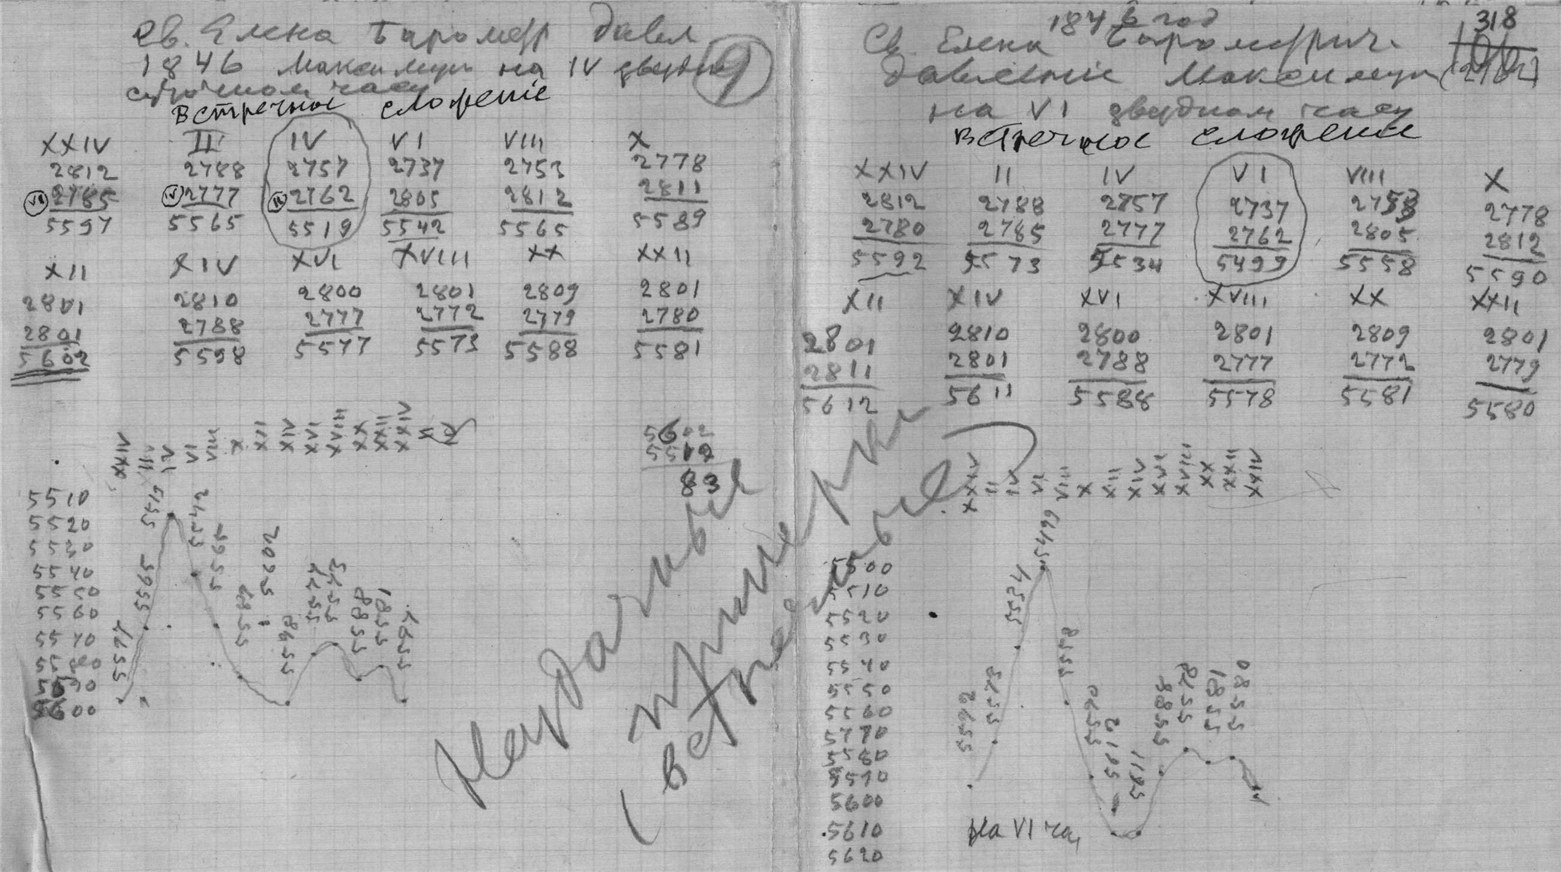 Св. Елена Баромер давл
1846 Максимум на IV двудно
строчном часу
Встречное сложение
9
XXIV II IV VI VIII X
2812 2788 2757 2737 2753 2778
VI 2785 IV 2777 II 2762 2805 2812 2811
5597 5565 5519 5542 5565 5589
XII XIV XVI XVIII XX XXII
2801 2810 2800 2801 2809 2801
2801 2788 2777 2772 2779 2780
5602 5598 5577 5573 5588 5581
XXIV II IV VI VIII X XII XIV XVI XVIII XX XXII XXIV
5602
5519
83
5510
5520
5530
5540
5550
5560
5570
5580
5590
5600
Неудачные
примерки
(встречные)
1846 год
318
Св. Елена Барометрич.
давление Максимум (2762)
на VI двудном часу
Встречное сложение
XXIV II IV VI VIII X
2812 2788 2757 2737 2753 2778
2780 2785 2777 2762 2805 2812
5592 5573 5534 5499 5558 5590
XII XIV XVI XVIII XX XXII
2801 2810 2800 2801 2809 2801
2811 2801 2788 2777 2772 2779
5612 5611 5588 5578 5581 5580
XXIV II IV VI VIII X XII XIV XVI XVIII XX XXII XXIV
5500
5510
5520
5530
5540
5550
5560
5770
5580
5590
5600
5610
5620
На VI час